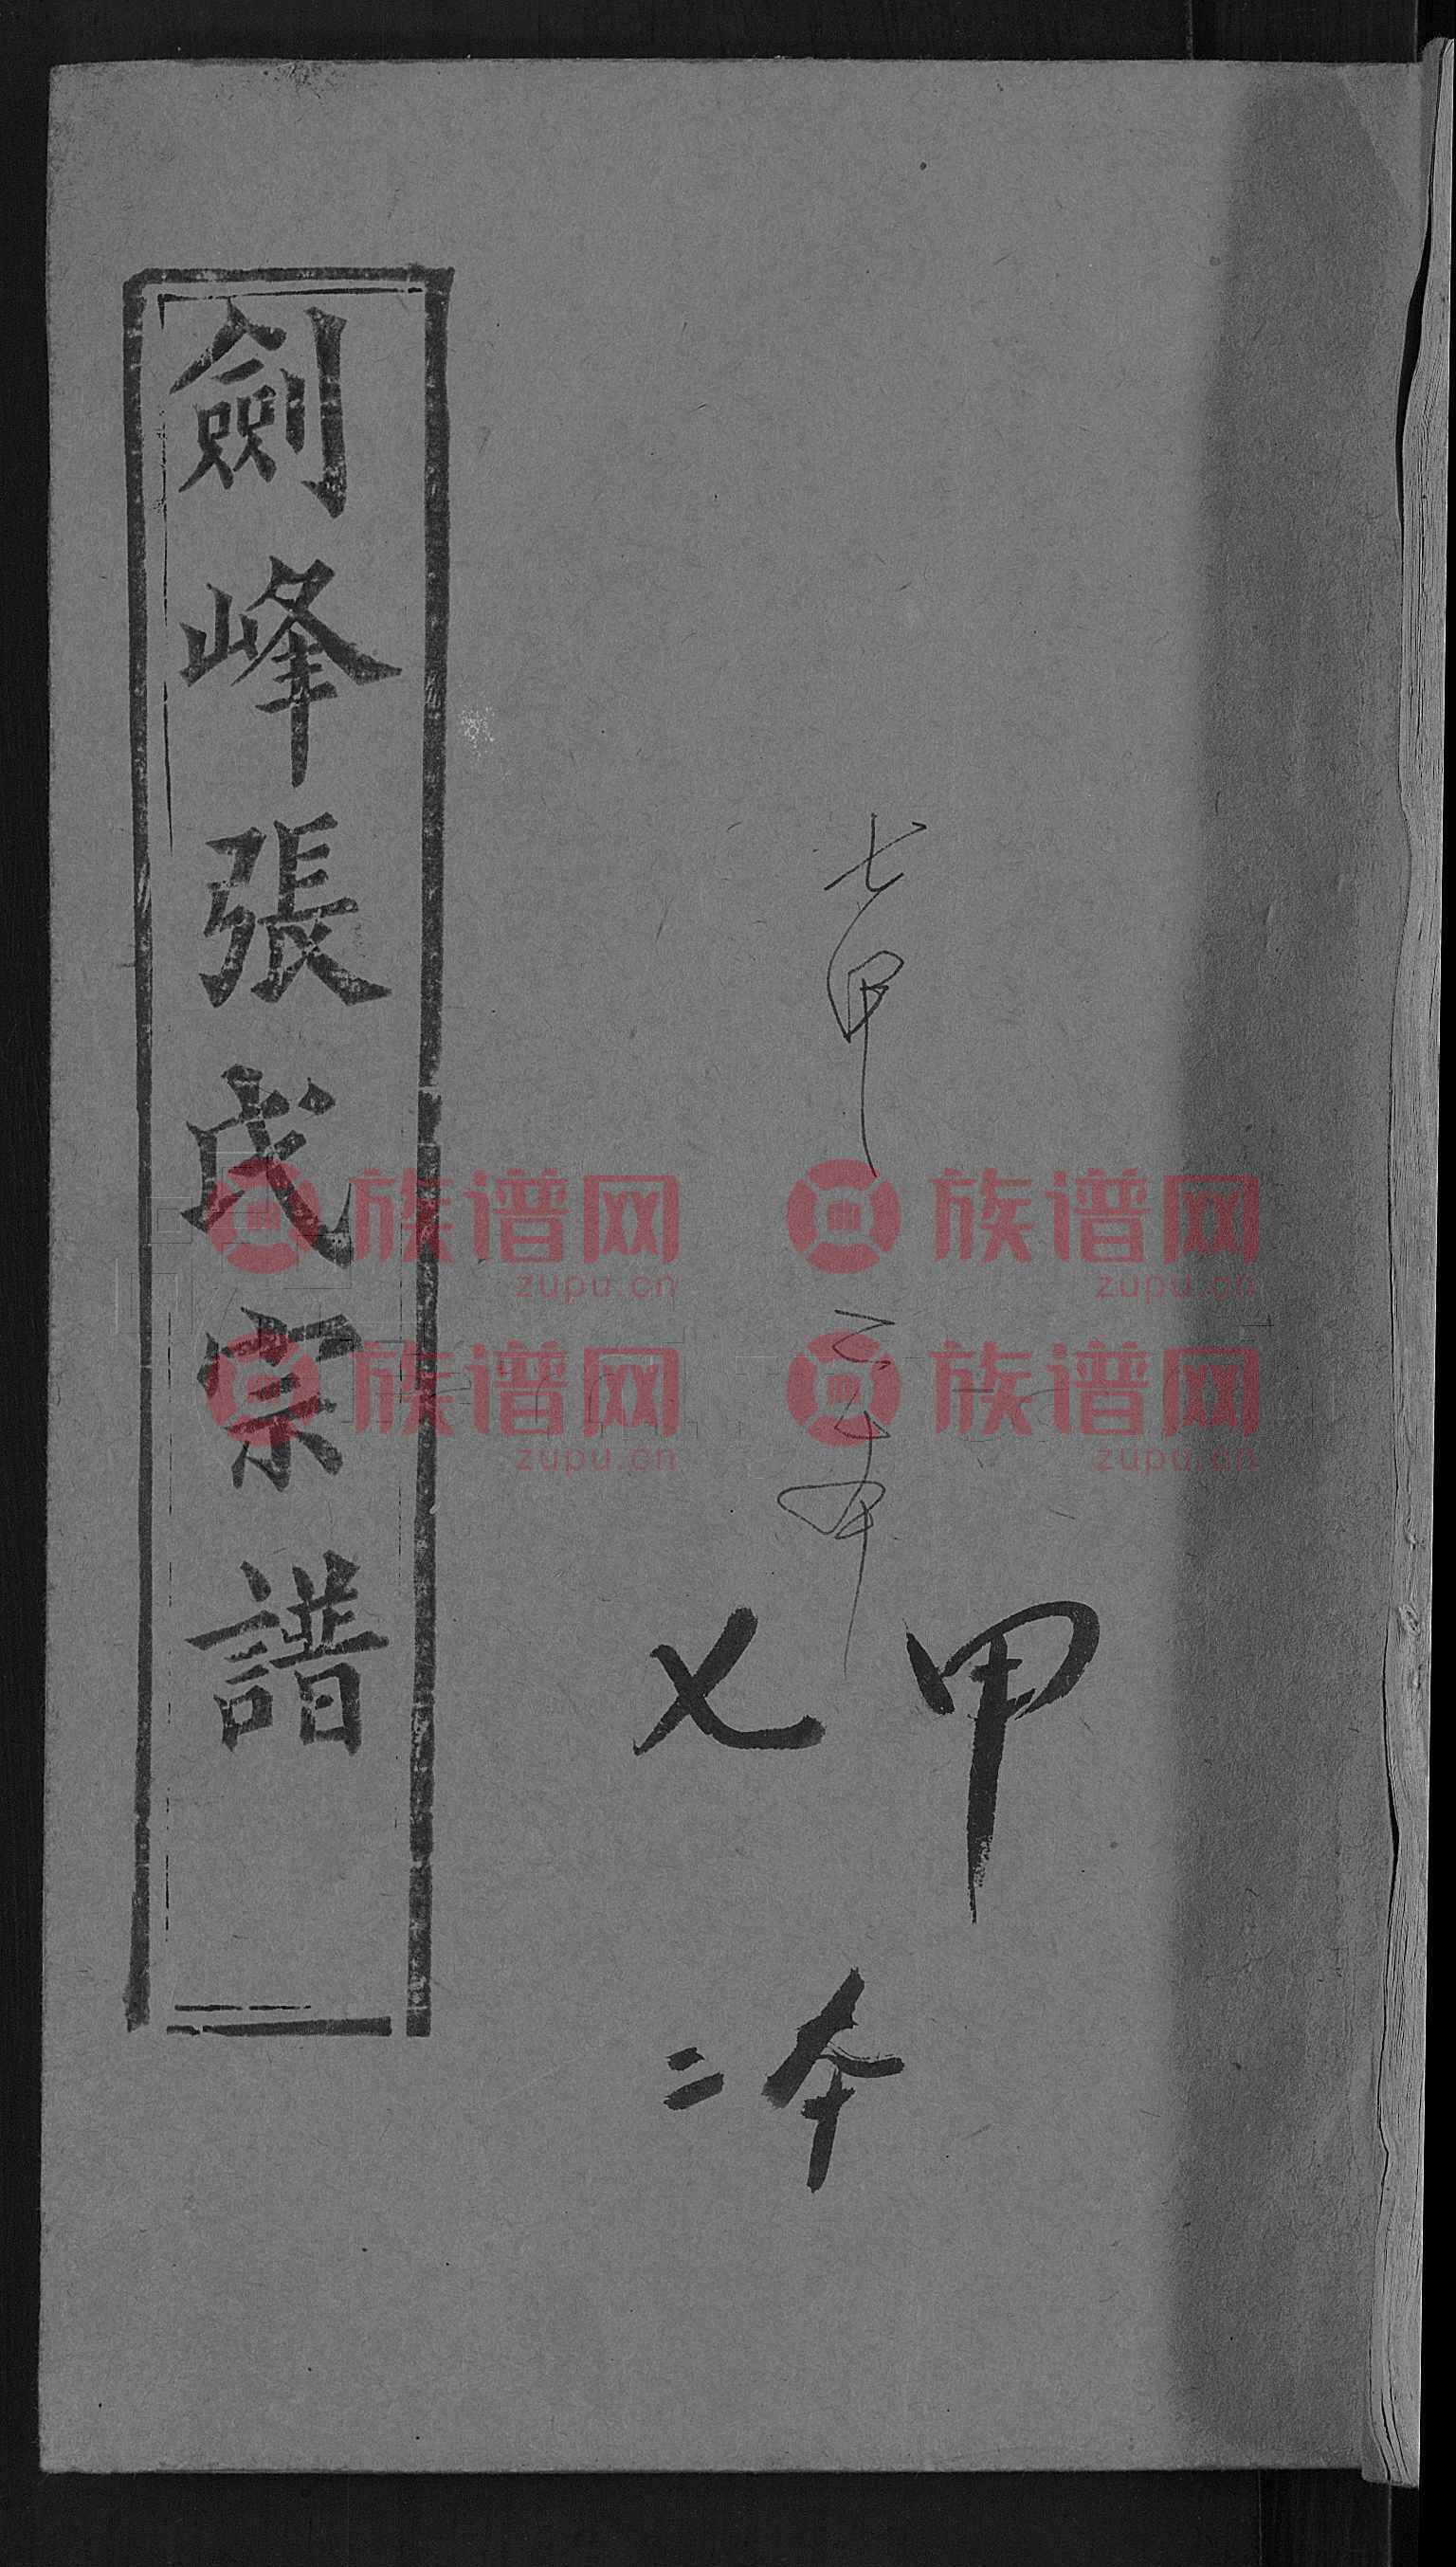 劍峰張氏宗譜
七甲
二本
甲
七
本
二
族谱网
zupu.cn
族谱网
zupu.cn
族谱网
zupu.cn
族谱网
zupu.cn